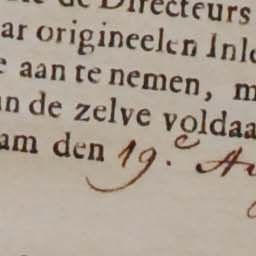 de Directeurs
ar origineelen Inl
aan te nemen, m
n de zelve voldaa
am den 19.e Au